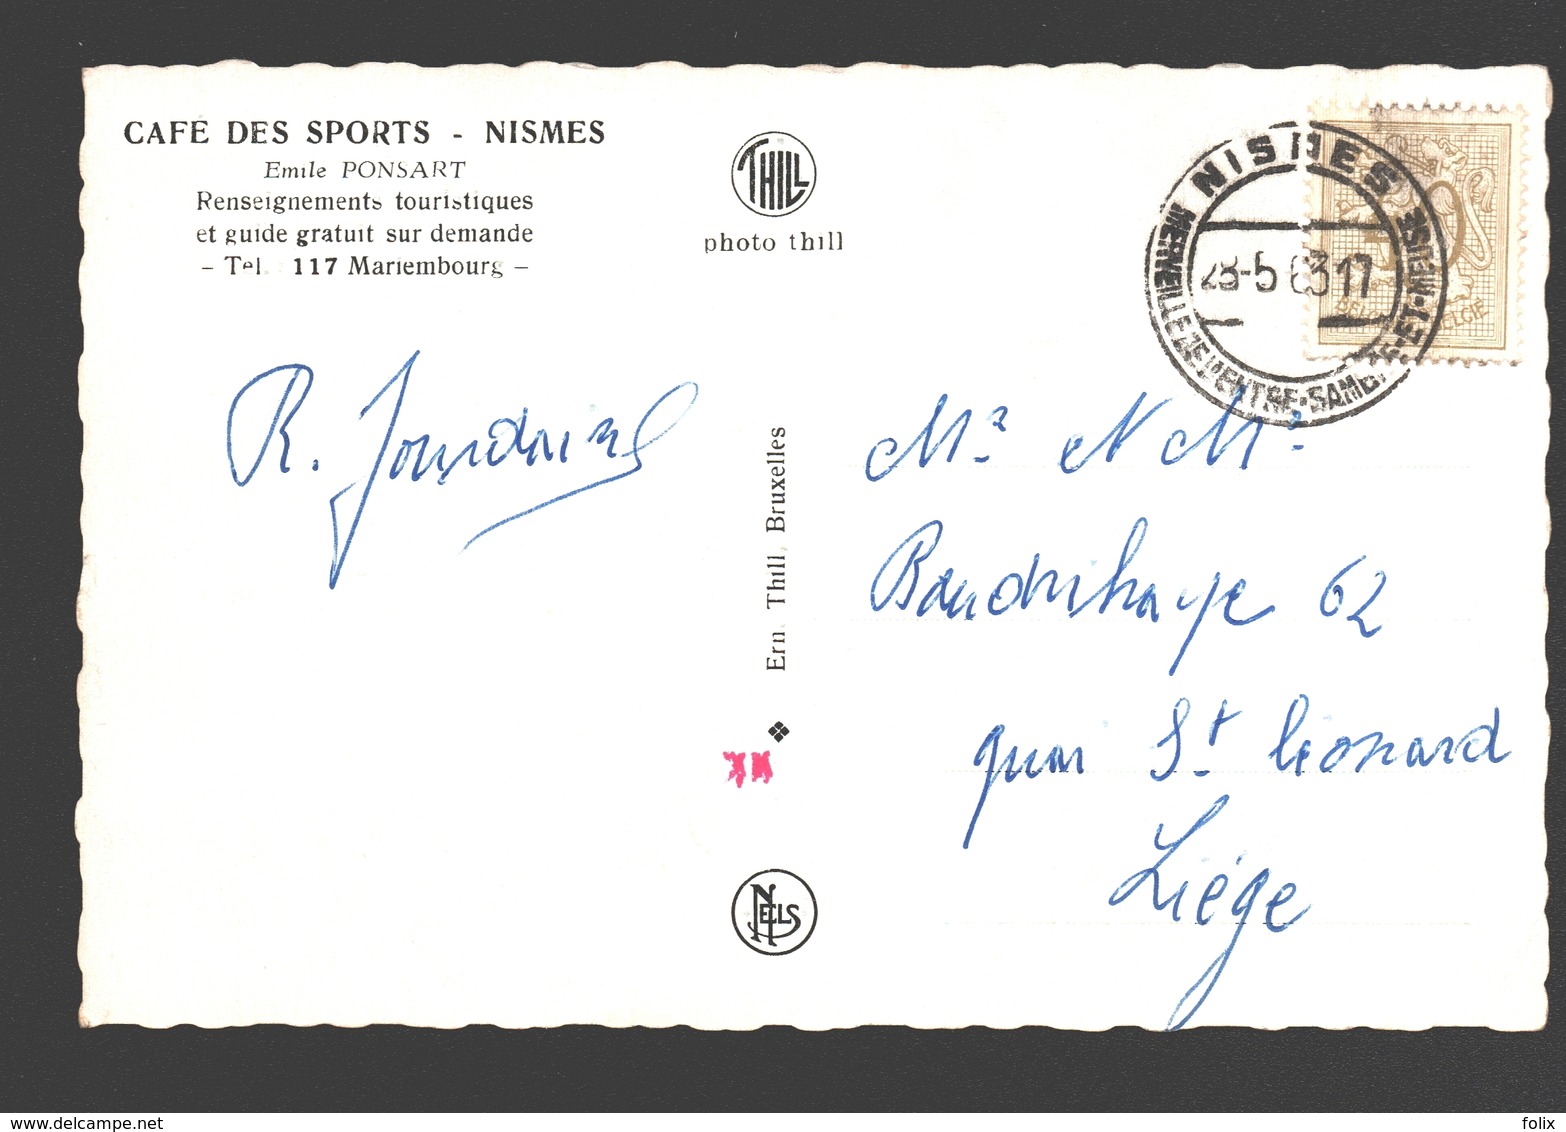 CAFE DES SPORTS - NISMES
Emile PONSART
Renseignements touristiques
et guide gratuit sur demande
- Tel. 117 Mariembourg -
THILL
photo thill
NISMES
28-5 63 17
MERVEILLEUSE ENTRE-SAMBRE-ET-MEUSE
BELGIE
R. Jourdain
Ern. Thill, Bruxelles
NELS
Mr & Me
Baudrihaye 62
quai St Léonard
Liége
delcampe.net
folix